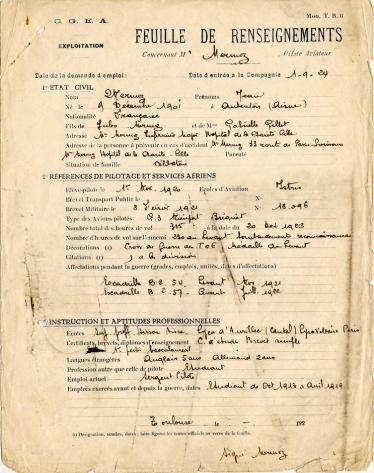 C. G. E. A.
Mod. T. R. 6
EXPLOITATION
FEUILLE DE RENSEIGNEMENTS
Concernant M Mermoz Pilote Aviateur
Date de la demande d'emploi: Date d'entrée à la Compagnie 1-9-24
1º ETAT CIVIL
Nom Mermoz Prénoms Jean
Né le 9 Décembre 1901 à Aubenton (Aisne)
Nationalité Française
Fils de Jules Mermoz et de Mme Gabrielle Gillet
Adresse Mermoz Hôpital de la Charité Lille
Adresse de la personne à prévenir en cas d'accident Mme Mermoz 33 Paris
Mme Mermoz Hôpital de la Charité Lille Parenté
Situation de famille Célibataire
2º RÉFÉRENCES DE PILOTAGE ET SERVICES AÉRIENS
Elève-pilote le 1er Nov. 1920 Ecoles d'Aviation Istres
Brevet Transport Public le Nº
Brevet Militaire le 1921 Nº 18.096
Type des Avions pilotés Breguet
Nombre total des heures de vol à la date du 20 1923
Nombre d'heures de vol sur l'ennemi Levant bombardement reconnaissances
Décorations Croix de Guerre du T O E Médaille du Levant
Citations à la division
Affectations pendant la guerre (grades, emplois, unités, dates d'affectations)
Escadrille B 54 Levant Nov. 1921
Escadrille B 57 Levant Juil. 1922
INSTRUCTION ET APTITUDES PROFESSIONNELLES
Ecoles Sup. prof. Lycée d'Aurillac (Cantal) Lycée Voltaire Paris
Certificats, brevets, diplômes d'enseignement C. d'étude Brevet simple
1re part baccalauréat
Langues étrangères Anglais 5 ans Allemand 2 ans
Profession autre que celle de pilote Etudiant
Emploi actuel Sergent Pilote
Emplois exercés avant et depuis la guerre, dates Etudiant de Oct 1913 à Avril 1919
Toulouse le - 192
(1) Désignation, nombre, dates; faire figurer les textes officiels au verso de la feuille.
Signé Mermoz